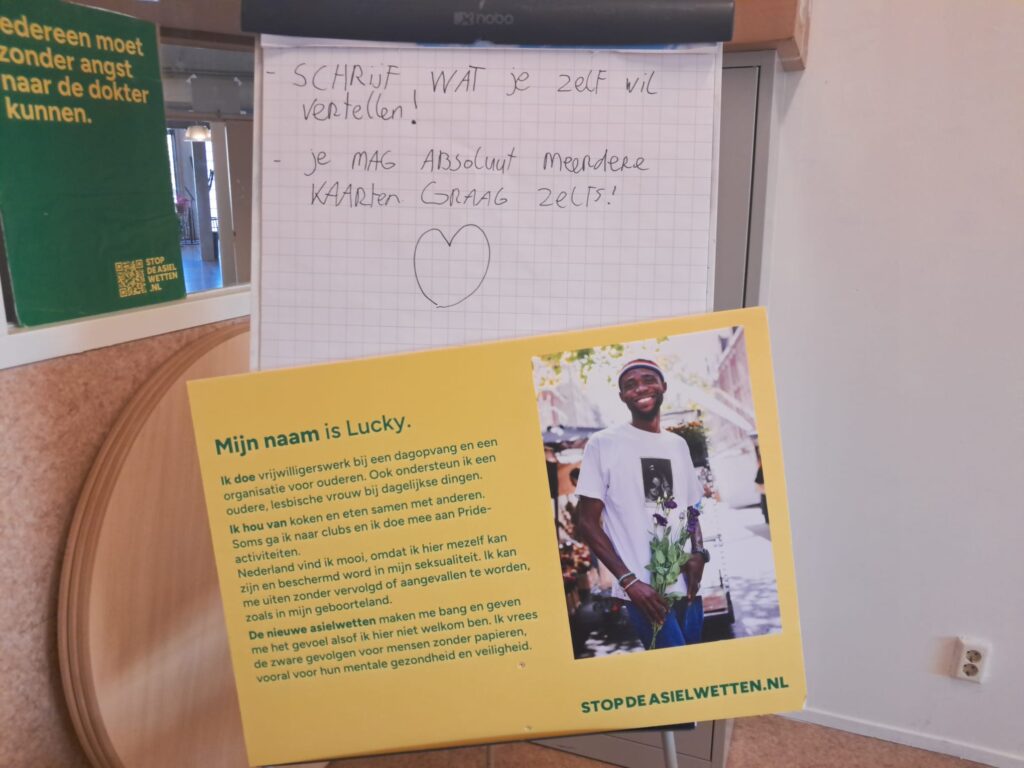 edereen moet
zonder angst
naar de dokter
kunnen.
STOP
DE ASIEL
WETTEN
.NL
nobo
- SCHRIJF WAT je zelf wil
vertellen!
- je MAG ABSOLUUT Meerdere
KAARTEN GRAAG ZELFS!
Mijn naam is Lucky.
Ik doe vrijwilligerswerk bij een dagopvang en een
organisatie voor ouderen. Ook ondersteun ik een
oudere, lesbische vrouw bij dagelijkse dingen.
Ik hou van koken en eten samen met anderen.
Soms ga ik naar clubs en ik doe mee aan Pride-
activiteiten.
Nederland vind ik mooi, omdat ik hier mezelf kan
zijn en beschermd word in mijn seksualiteit. Ik kan
me uiten zonder vervolgd of aangevallen te worden,
zoals in mijn geboorteland.
De nieuwe asielwetten maken me bang en geven
me het gevoel alsof ik hier niet welkom ben. Ik vrees
de zware gevolgen voor mensen zonder papieren,
vooral voor hun mentale gezondheid en veiligheid.
STOPDEASIELWETTEN.NL